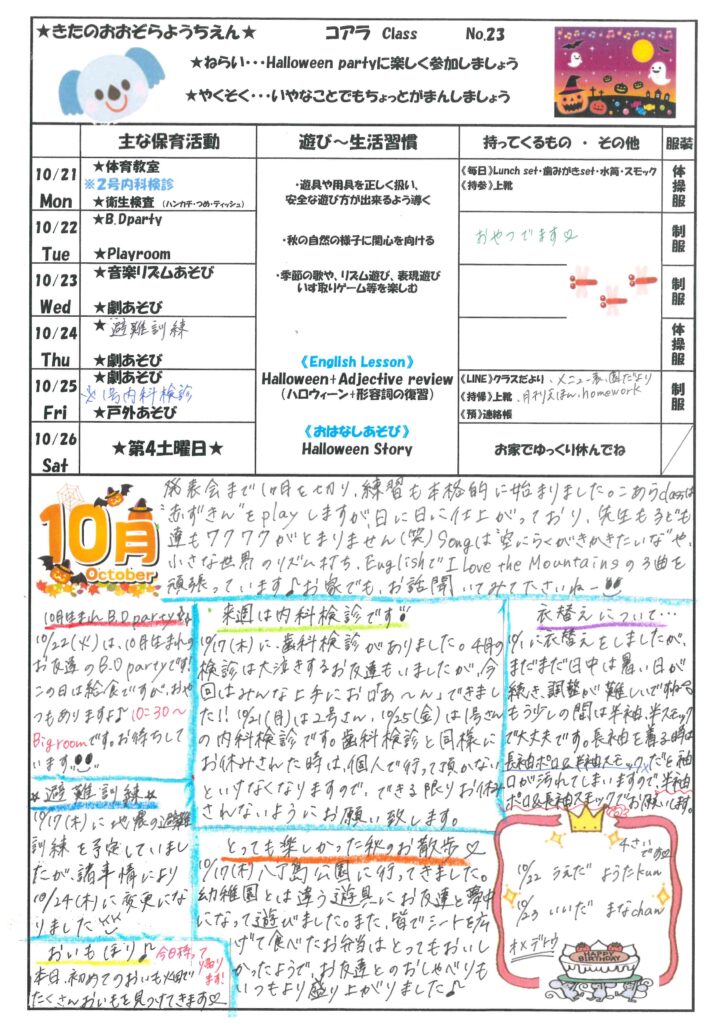 ★きたのおおぞらようちえん★ コアラ Class No.23
★ねらい・・・Halloween partyに楽しく参加しましょう
★やくそく・・・いやなことでもちょっとがまんしましょう
主な保育活動 遊び～生活習慣 持ってくるもの ・ その他 服装
10/21 Mon
★体育教室
※2号内科検診
★衛生検査 (ハンカチ・つめ・ティッシュ)
・遊具や用具を正しく扱い、
安全な遊び方が出来るよう導く
《毎日》Lunch set・歯みがきset・水筒・スモック
《持参》上靴
体操服
10/22 Tue
★B.Dparty
★Playroom
・秋の自然の様子に関心を向ける
おやつでます
制服
10/23 Wed
★音楽リズムあそび
★劇あそび
・季節の歌や、リズム遊び、表現遊び
いす取りゲーム等を楽しむ
制服
10/24 Thu
★避難訓練
★劇あそび
体操服
10/25 Fri
★劇あそび
※1号内科検診
★戸外あそび
《English Lesson》
Halloween+Adjective review
(ハロウィーン+形容詞の復習)
《LINE》クラスだより、メニュー表、園だより
《持帰》上靴、月刊えほん、homework
《預》連絡帳
制服
10/26 Sat
★第4土曜日★
《おはなしあそび》
Halloween Story
お家でゆっくり休んでね
10月
October
発表会まで1ヶ月を切り、練習も本格的に始まりました。こあらclassは
"赤ずきん"をplayしますが、日に日に仕上がっており、先生も子ども
達もワクワクがとまりません(笑)Songは"空にらくがきかきたいな"や、
小さな世界のリズム打ち、EnglishでI love the Mountainsの3曲を
頑張っています♪お家でも、お話聞いてみてくださいねー
10月生まれB.Dparty
10/22(火)は、10月生まれの
お友達のB.Dpartyです!
この日は給食ですが、おや
つもありますよ♪10:30～
Big roomです。お待ちして
います。
避難訓練
10/17(木)に地震の避難
訓練を予定していまし
たが、諸事情により
10/24(木)に変更にな
りました
おいもほり♪
今日持って帰ります!
本日、初めてのおいも畑で
たくさんおいもを見つけてきます♡
来週は内科検診です
10/17(木)に、歯科検診がありました。4月の
検診は大泣きするお友達もいましたが、今
回はみんな上手にお口"あ～ん"できまし
た!! 10/21(月)は2号さん、10/25(金)は1号さん
の内科検診です。歯科検診と同様に
お休みされた時は、個人で行って頂かない
といけなくなりますので、できる限りお休み
されないようにお願い致します。
とっても楽しかった秋のお散歩♡
10/17(木)八丁島公園に行ってきました。
幼稚園とは違う遊具にお友達と夢中
になって遊びました。また、皆でシートを広
げて食べたお弁当はとってもおいし
かったようで、お友達とのおしゃべりも
いつもより盛り上がりました♪
衣替えについて…
10/1に衣替えをしましたが、
まだまだ日中は暑い日が
続き、調整が難しいですね
もう少しの間は半袖、半スモック
で大丈夫です。長袖を着る時は
長袖ポロ&半袖スモックだと袖
口が汚れてしまいますので、半袖
ポロ&長袖スモックでお願いします。
4さいです♡
10/22 うえだ ようたkun
10/23 いいだ まなchan
オメデトウ
HAPPY BIRTHDAY